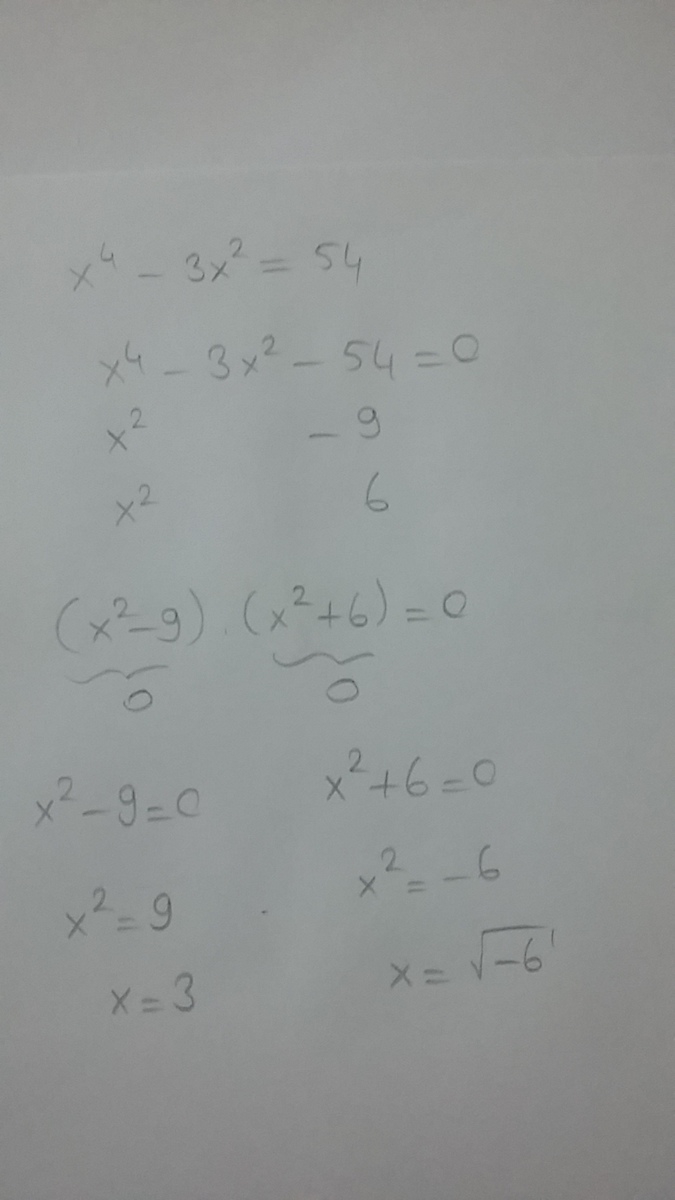 x⁴ − 3x² = 54
x⁴ − 3x² − 54 = 0
x² − 9
x² 6
(x² − 9) . (x² + 6) = 0
0 0
x² − 9 = 0 x² + 6 = 0
x² = 9 x² = −6
x = 3 x = √−6